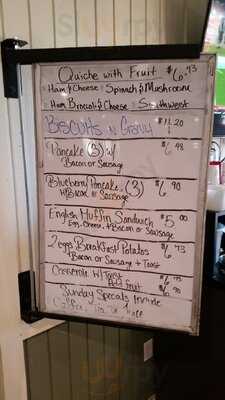 Quiche with Fruit $6.93
Ham & Cheese Spinach & Mushroom
Ham Brocoli & Cheese Southwest
Biscuits n Gravy $11.20
Pancake (3) w/ $6.98
Bacon or Sausage
Blueberry Pancake (3) $6.90
w/ Bacon or Sausage
English Muffin Sandwich $5.00
Egg, Cheese, & Bacon or Sausage
2 eggs Breakfast Potatoes $6.93
Bacon or Sausage + Toast
Casserole w/ Toast
And Fruit $6.90
Sunday Specials Include
Coffee, Tea or Juice